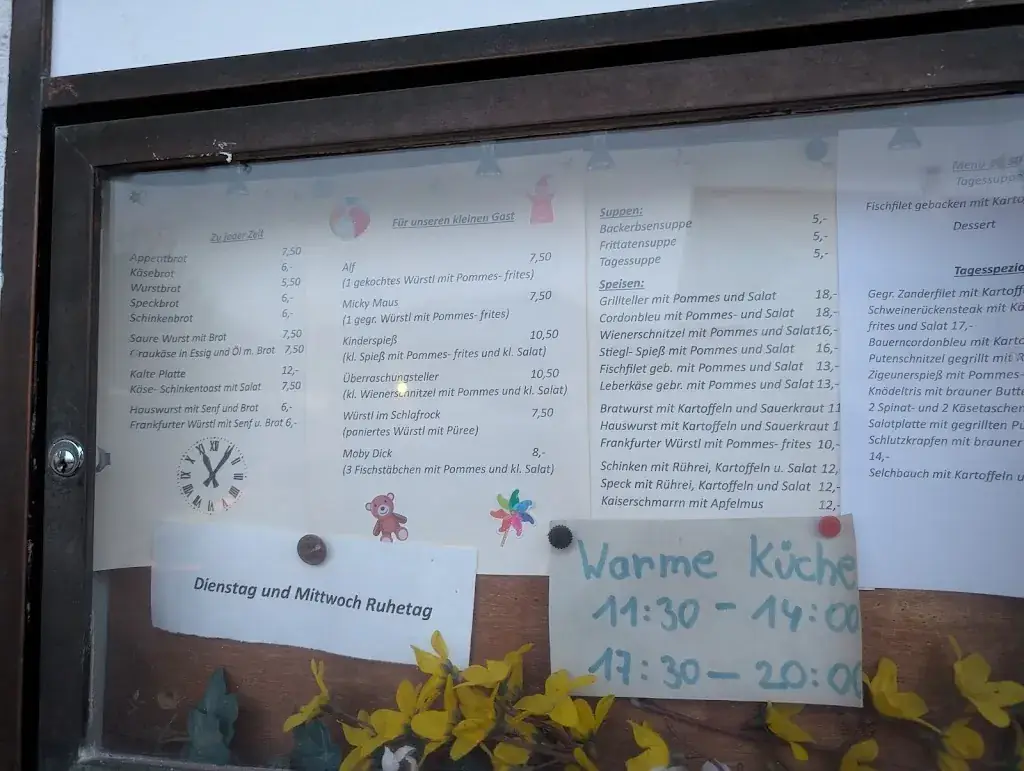 Zu jeder Zeit
Appetitbrot 7,50
Käsebrot 6,-
Wurstbrot 5,50
Speckbrot 6,-
Schinkenbrot 6,-
Saure Wurst mit Brot 7,50
Graukäse in Essig und Öl m. Brot 7,50
Kalte Platte 12,-
Käse- Schinkentoast mit Salat 7,50
Hauswurst mit Senf und Brot 6,-
Frankfurter Würstl mit Senf u. Brot 6,-
Für unseren kleinen Gast
Alf 7,50
(1 gekochtes Würstl mit Pommes- frites)
Micky Maus 7,50
(1 gegr. Würstl mit Pommes- frites)
Kinderspieß 10,50
(kl. Spieß mit Pommes- frites und kl. Salat)
Überraschungsteller 10,50
(kl. Wienerschnitzel mit Pommes und kl. Salat)
Würstl im Schlafrock 7,50
(paniertes Würstl mit Püree)
Moby Dick 8,-
(3 Fischstäbchen mit Pommes und kl. Salat)
Suppen:
Backerbsensuppe 5,-
Frittatensuppe 5,-
Tagessuppe 5,-
Speisen:
Grillteller mit Pommes und Salat 18,-
Cordonbleu mit Pommes- und Salat 18,-
Wienerschnitzel mit Pommes und Salat 16,-
Stiegl- Spieß mit Pommes und Salat 16,-
Fischfilet geb. mit Pommes und Salat 13,-
Leberkäse gebr. mit Pommes und Salat 13,-
Bratwurst mit Kartoffeln und Sauerkraut 11
Hauswurst mit Kartoffeln und Sauerkraut 1
Frankfurter Würstl mit Pommes- frites 10,-
Schinken mit Rührei, Kartoffeln u. Salat 12,
Speck mit Rührei, Kartoffeln und Salat 12,
Kaiserschmarrn mit Apfelmus 12,-
Menü
Tagessuppe
Fischfilet gebacken mit Karto
Dessert
Tagesspezia
Gegr. Zanderfilet mit Kartoff
Schweinerückensteak mit Kä
frites und Salat 17,-
Bauerncordonbleu mit Karto
Putenschnitzel gegrillt mit R
Zigeunerspieß mit Pommes-
Knödeltris mit brauner Butte
2 Spinat- und 2 Käsetaschen
Salatplatte mit gegrillten Pu
Schlutzkrapfen mit brauner
14,-
Selchbauch mit Kartoffeln u
Dienstag und Mittwoch Ruhetag
Warme Küche
11:30 - 14:00
17:30 - 20:00